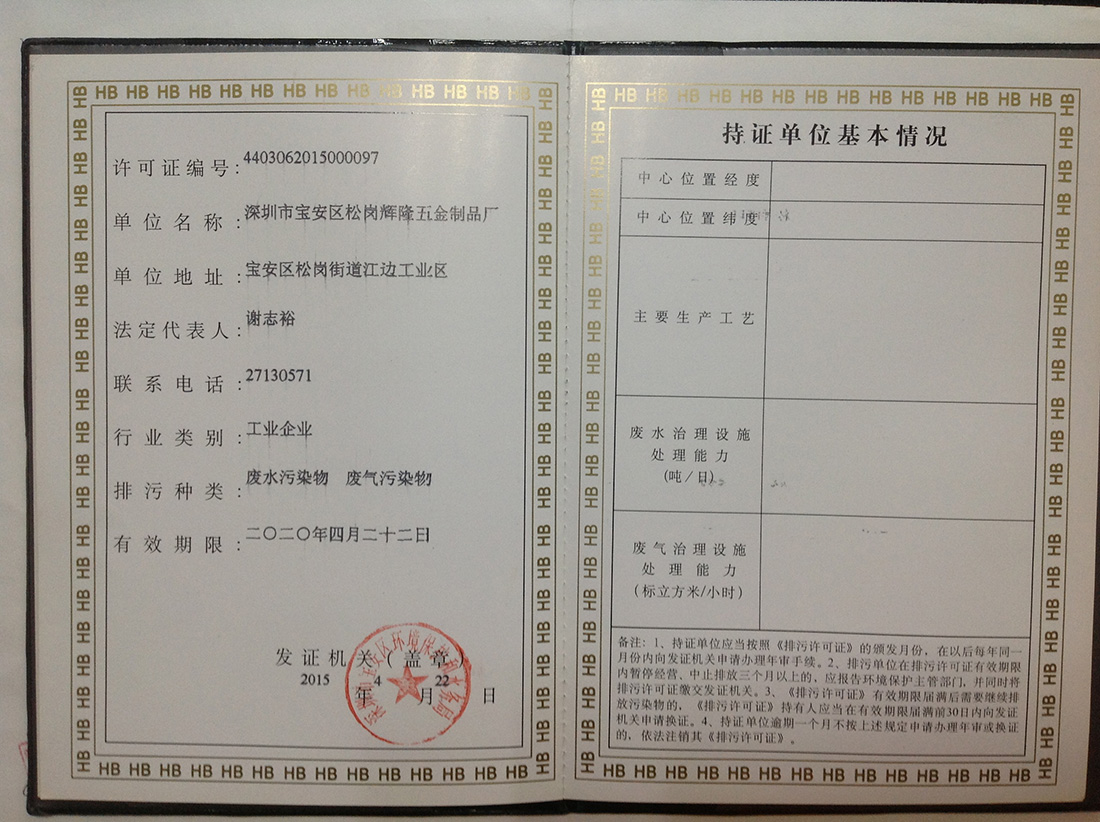 许可证编号：4403062015000097
单位名称：深圳市宝安区松岗辉隆五金制品厂
单位地址：宝安区松岗街道江边工业区
法定代表人：谢志裕
联系电话：27130571
行业类别：工业企业
排污种类：废水污染物 废气污染物
有效期限：二〇二〇年四月二十二日
发证机关（盖章）
2015年4月22日
持证单位基本情况
中心位置经度
中心位置纬度
主要生产工艺
废水治理设施
处理能力
(吨/日)
废气治理设施
处理能力
(标立方米/小时)
备注：1、持证单位应当按照《排污许可证》的颁发月份，在以后每年同一
月份内向发证机关申请办理年审手续。2、排污单位在排污许可证有效期限
内暂停经营、中止排放三个月以上的，应报告环境保护主管部门，并同时将
排污许可证缴交发证机关。3、《排污许可证》有效期限届满后需要继续排
放污染物的，《排污许可证》持有人应当在有效期限届满前30日内向发证
机关申请换证。4、持证单位逾期一个月不按上述规定申请办理年审或换证
的，依法注销其《排污许可证》。